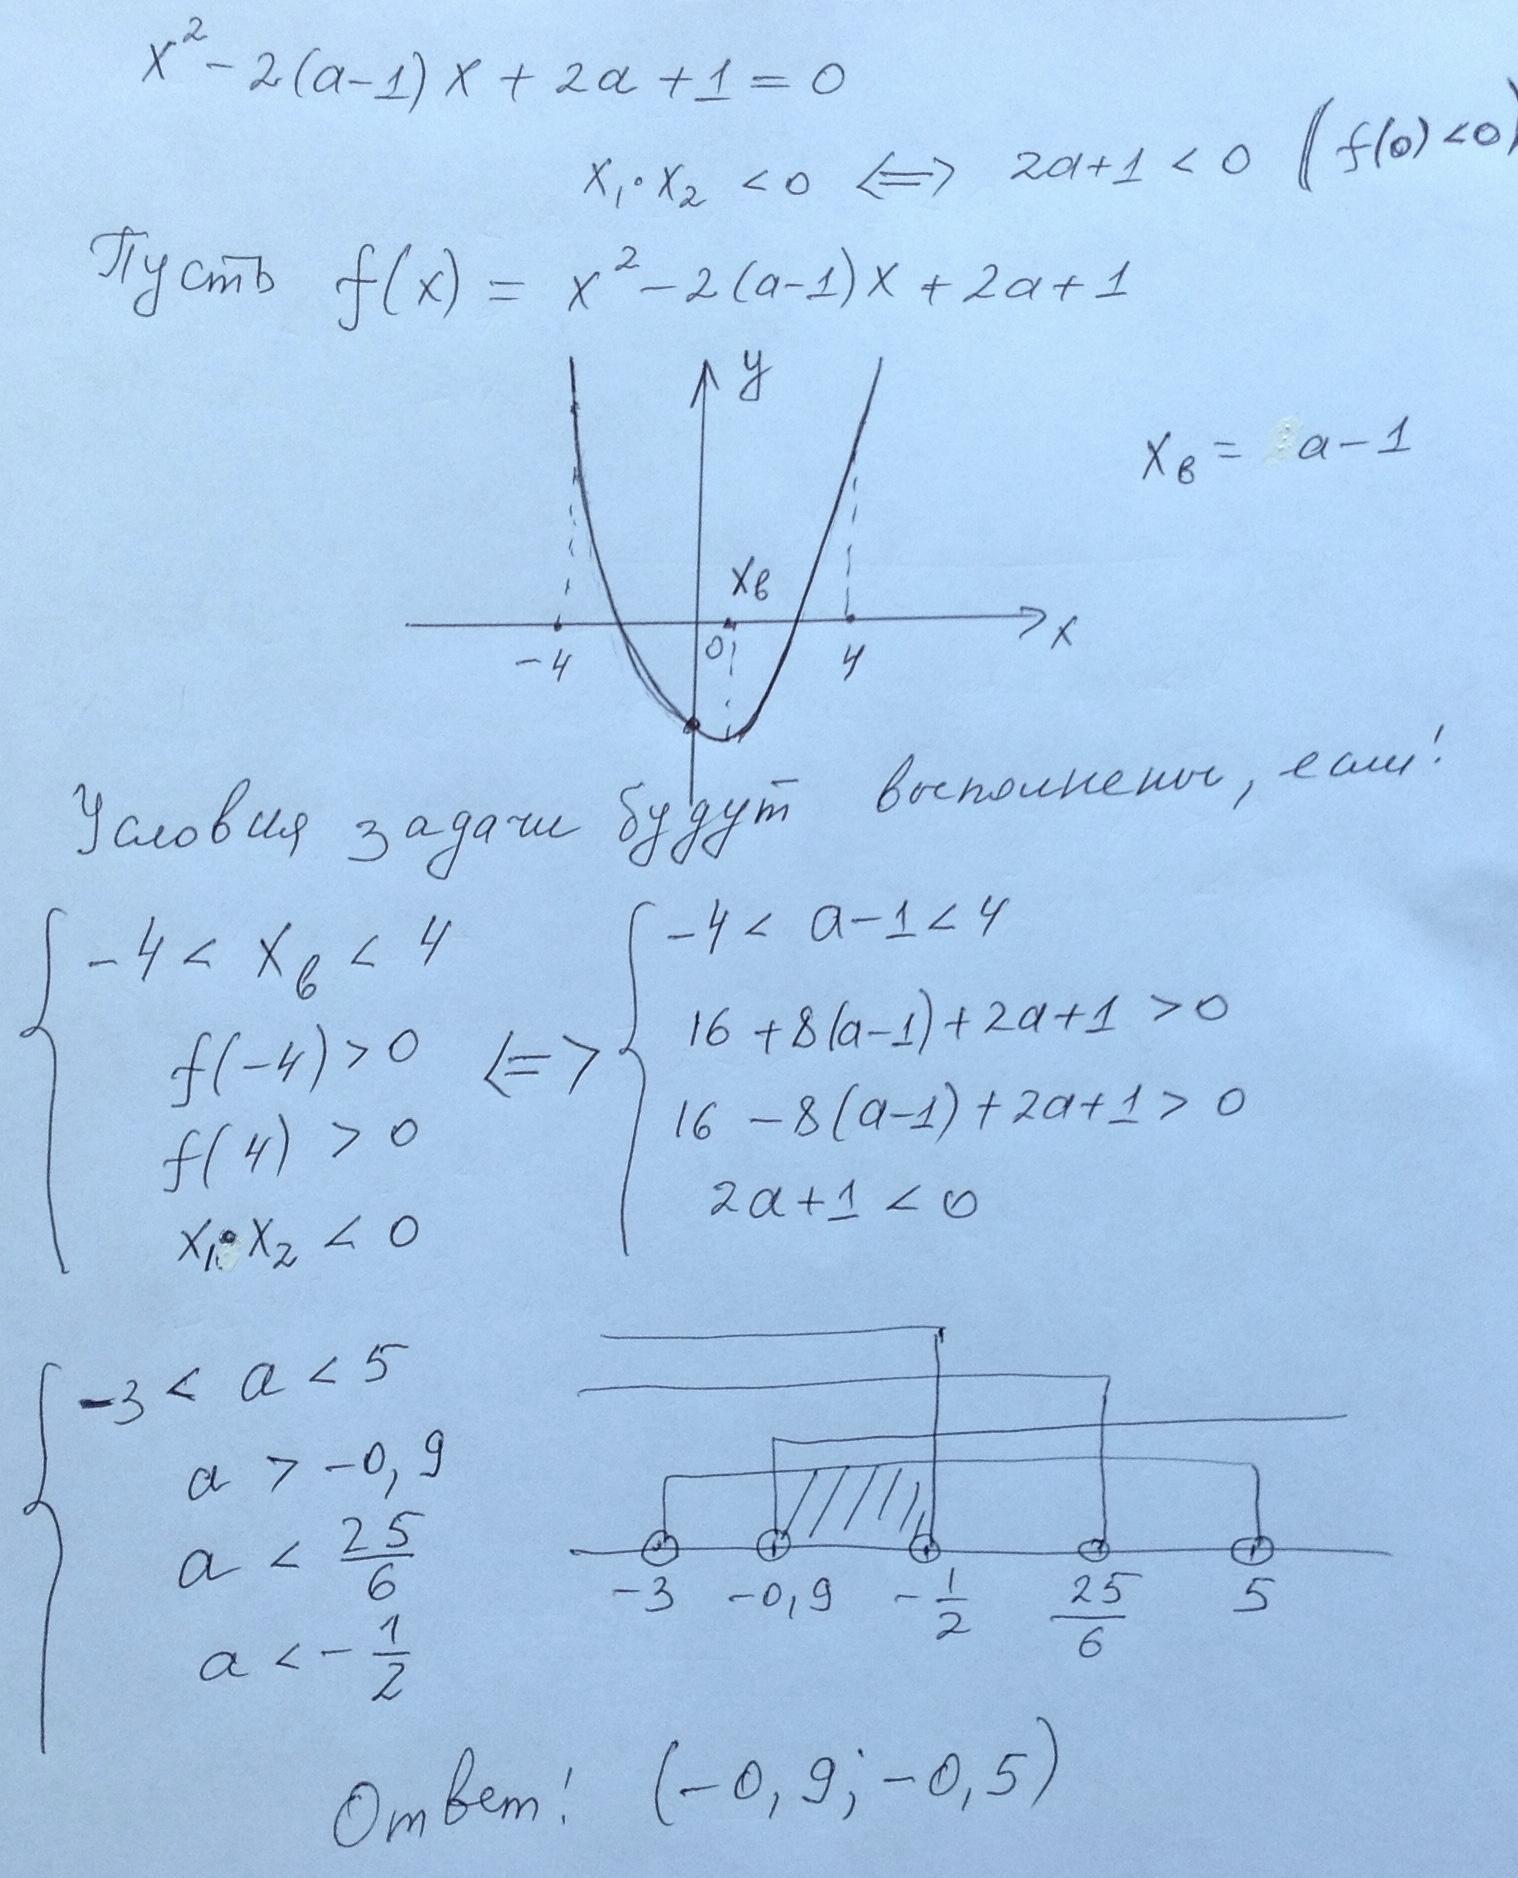 x² - 2(a-1)x + 2a + 1 = 0
x₁·x₂ < 0 <=> 2a+1 < 0 (f(0) < 0)
Пусть f(x) = x² - 2(a-1)x + 2a + 1
y
x_в = a - 1
x_в
-4 0 4 x
Условия задачи будут выполнены, если:
-4 < x_в < 4
f(-4) > 0
f(4) > 0
x₁·x₂ < 0
<=>
-4 < a-1 < 4
16 + 8(a-1) + 2a+1 > 0
16 - 8(a-1) + 2a+1 > 0
2a+1 < 0
-3 < a < 5
a > -0,9
a < 25/6
a < -1/2
-3 -0,9 -1/2 25/6 5
Ответ: (-0,9; -0,5)